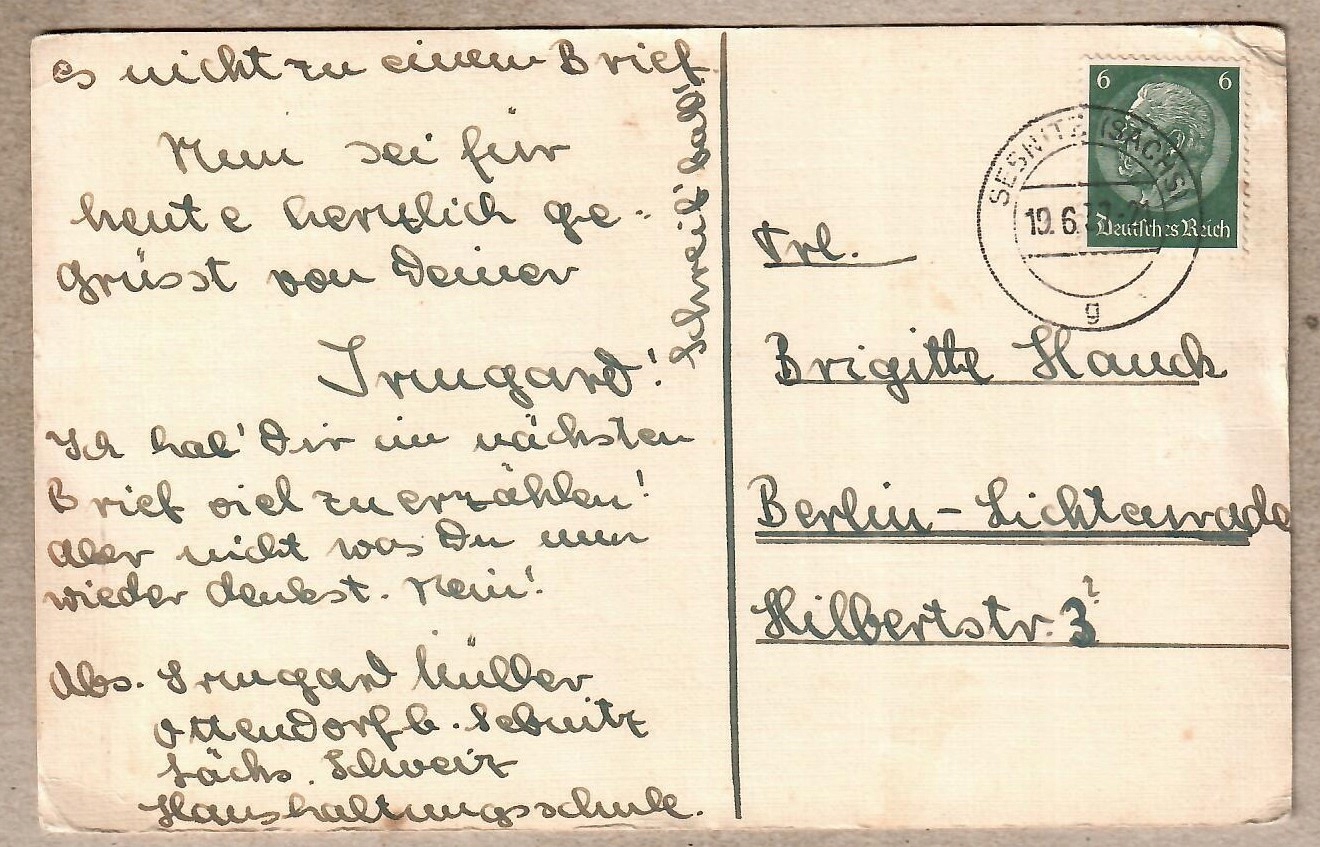 es nicht zu einem Brief.
Nun sei für
heute herzlich ge-
grüsst von Deiner
Irmgard!
Schreib' bald!
Ich hab' Dir im nächsten
Brief viel zu erzählen!
Aber nicht was Du nun
wieder denkst. Nein!
Abs. Irmgard Müller
Ottendorf b. Sebnitz
Sächs. Schweiz
Haushaltungsschule.
6 6
Deutsches Reich
SEBNITZ (SACHS)
19.6.
g
Frl.
Brigitte Hauck
Berlin-Lichtenrade
Hilbertstr. 3?